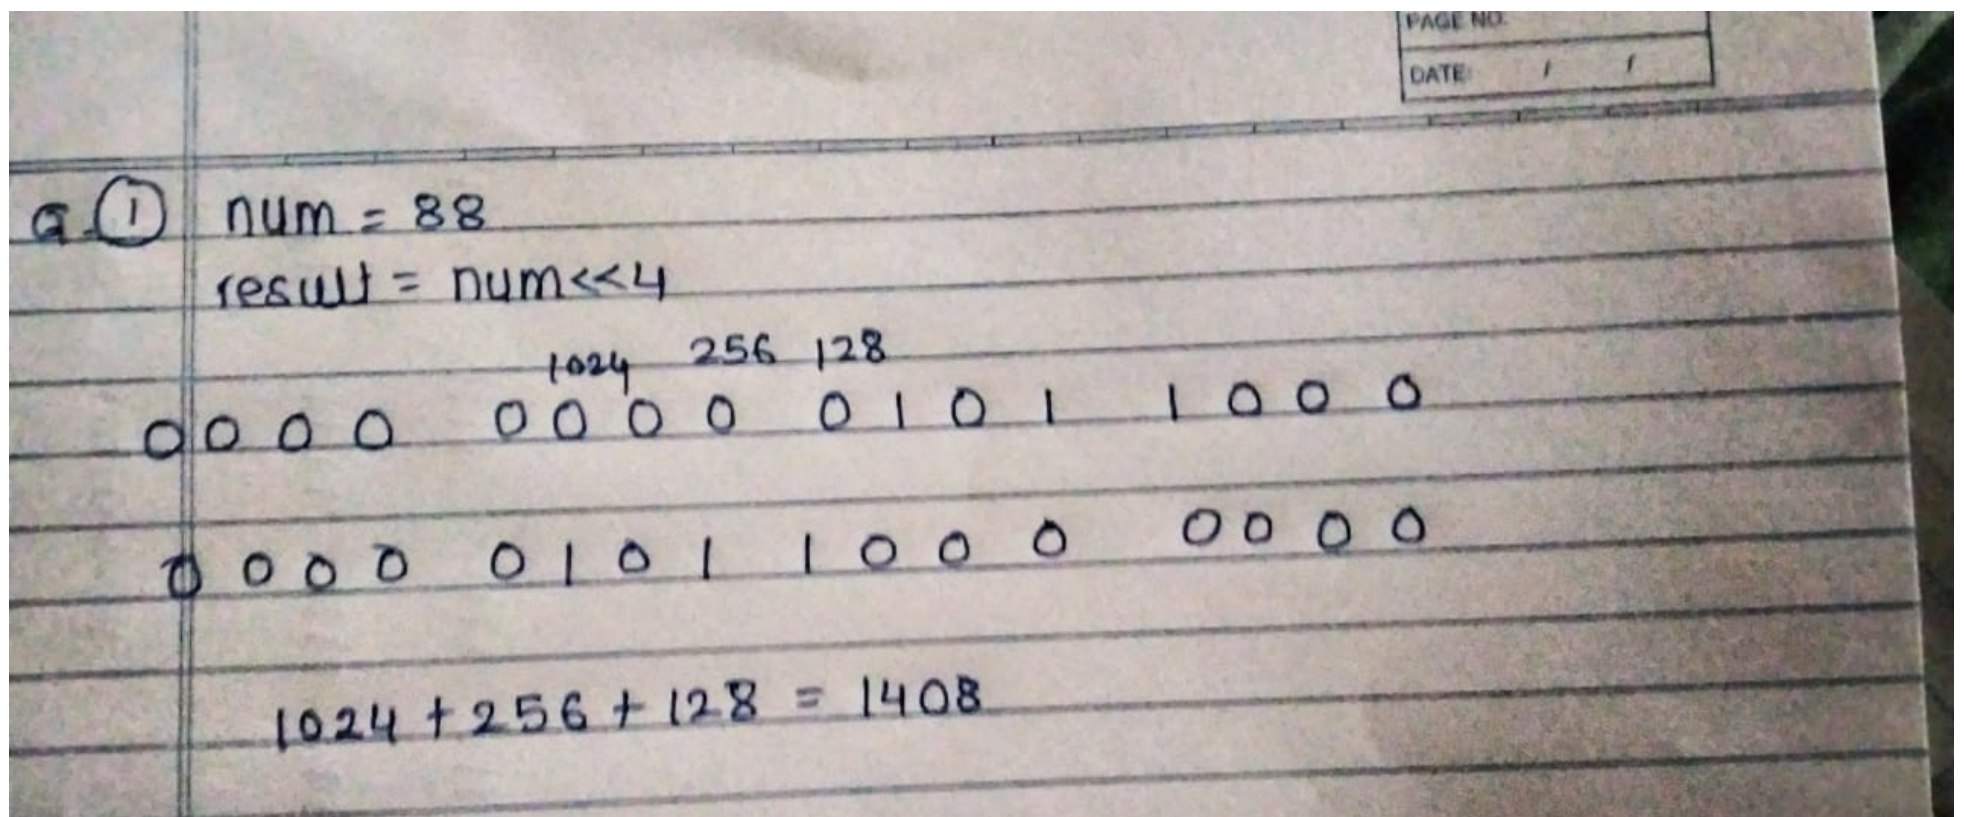 PAGE NO.
DATE: / /
Q.① num = 88
result = num<<4
1024 256 128
0000 0000 0101 1000
0000 0101 1000 0000
1024 + 256 + 128 = 1408